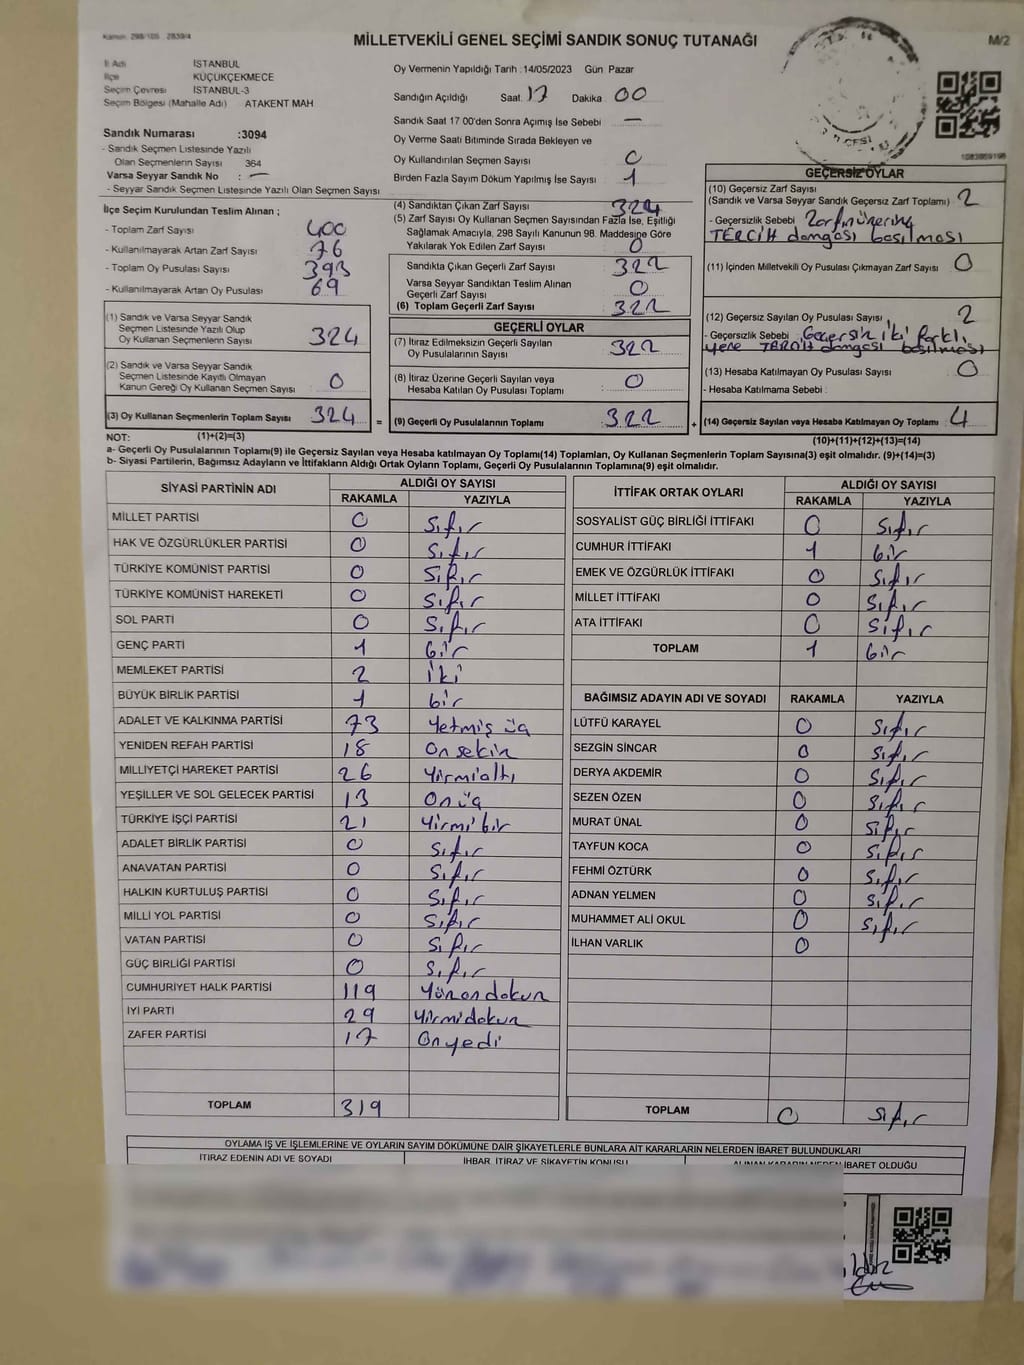 Kanun: 298/105 2839/4
MİLLETVEKİLİ GENEL SEÇİMİ SANDIK SONUÇ TUTANAĞI
M/2
İl Adı İSTANBUL
İlçe KÜÇÜKÇEKMECE
Seçim Çevresi İSTANBUL-3
Seçim Bölgesi (Mahalle Adı) ATAKENT MAH
Sandık Numarası :3094
- Sandık Seçmen Listesinde Yazılı
Olan Seçmenlerin Sayısı 364
Varsa Seyyar Sandık No : —
- Seyyar Sandık Seçmen Listesinde Yazılı Olan Seçmen Sayısı
İlçe Seçim Kurulundan Teslim Alınan ;
- Toplam Zarf Sayısı 400
- Kullanılmayarak Artan Zarf Sayısı 76
- Toplam Oy Pusulası Sayısı 393
- Kullanılmayarak Artan Oy Pusulası 69
(1) Sandık ve Varsa Seyyar Sandık
Seçmen Listesinde Yazılı Olup
Oy Kullanan Seçmenlerin Sayısı 324
(2) Sandık ve Varsa Seyyar Sandık
Seçmen Listesinde Kayıtlı Olmayan
Kanun Gereği Oy Kullanan Seçmen Sayısı 0
(3) Oy Kullanan Seçmenlerin Toplam Sayısı 324
Oy Vermenin Yapıldığı Tarih :14/05/2023 Gün Pazar
Sandığın Açıldığı Saat 17 Dakika 00
Sandık Saat 17 00'den Sonra Açımış İse Sebebi —
Oy Verme Saati Bitiminde Sırada Bekleyen ve
Oy Kullandırılan Seçmen Sayısı 0
Birden Fazla Sayım Döküm Yapılmış İse Sayısı 1
(4) Sandıktan Çıkan Zarf Sayısı 324
(5) Zarf Sayısı Oy Kullanan Seçmen Sayısından Fazla İse, Eşitliği
Sağlamak Amacıyla, 298 Sayılı Kanunun 98. Maddesine Göre
Yakılarak Yok Edilen Zarf Sayısı 0
Sandıkta Çıkan Geçerli Zarf Sayısı 322
Varsa Seyyar Sandıktan Teslim Alınan
Geçerli Zarf Sayısı 0
(6) Toplam Geçerli Zarf Sayısı 322
GEÇERLİ OYLAR
(7) İtiraz Edilmeksizin Geçerli Sayılan
Oy Pusulalarının Sayısı 322
(8) İtiraz Üzerine Geçerli Sayılan veya
Hesaba Katılan Oy Pusulası Toplamı 0
= (9) Geçerli Oy Pusulalarının Toplamı 322
1083859196
GEÇERSİZ OYLAR
(10) Geçersiz Zarf Sayısı
(Sandık ve Varsa Seyyar Sandık Geçersiz Zarf Toplamı) 2
- Geçersizlik Sebebi Zarfın üzerine
TERCİH damgası basılması
(11) İçinden Milletvekili Oy Pusulası Çıkmayan Zarf Sayısı 0
(12) Geçersiz Sayılan Oy Pusulası Sayısı 2
- Geçersizlik Sebebi Geçersiz iki farklı
yere TERCİH damgası basılması
(13) Hesaba Katılmayan Oy Pusulası Sayısı 0
- Hesaba Katılmama Sebebi :
+ (14) Geçersiz Sayılan veya Hesaba Katılmayan Oy Toplamı 4
NOT: (1)+(2)=(3) (10)+(11)+(12)+(13)=(14)
a- Geçerli Oy Pusulasının Toplamı(9) ile Geçersiz Sayılan veya Hesaba katılmayan Oy Toplamı(14) Toplamları, Oy Kullanan Seçmenlerin Toplam Sayısına(3) eşit olmalıdır. (9)+(14)=(3)
b- Siyasi Partilerin, Bağımsız Adayların ve İttifakların Aldığı Ortak Oyların Toplamı, Geçerli Oy Pusulalarının Toplamına(9) eşit olmalıdır.
SİYASİ PARTİNİN ADI ALDIĞI OY SAYISI
RAKAMLA YAZIYLA
MİLLET PARTİSİ 0 Sıfır
HAK VE ÖZGÜRLÜKLER PARTİSİ 0 Sıfır
TÜRKİYE KOMÜNİST PARTİSİ 0 Sıfır
TÜRKİYE KOMÜNİST HAREKETİ 0 Sıfır
SOL PARTİ 0 Sıfır
GENÇ PARTİ 1 bir
MEMLEKET PARTİSİ 2 iki
BÜYÜK BİRLİK PARTİSİ 1 bir
ADALET VE KALKINMA PARTİSİ 73 Yetmiş üç
YENİDEN REFAH PARTİSİ 18 On sekiz
MİLLİYETÇİ HAREKET PARTİSİ 26 Yirmialtı
YEŞİLLER VE SOL GELECEK PARTİSİ 13 On üç
TÜRKİYE İŞÇİ PARTİSİ 21 Yirmi bir
ADALET BİRLİK PARTİSİ 0 Sıfır
ANAVATAN PARTİSİ 0 Sıfır
HALKIN KURTULUŞ PARTİSİ 0 Sıfır
MİLLİ YOL PARTİSİ 0 Sıfır
VATAN PARTİSİ 0 Sıfır
GÜÇ BİRLİĞİ PARTİSİ 0 Sıfır
CUMHURİYET HALK PARTİSİ 119 Yüzondokuz
İYİ PARTİ 29 Yirmidokuz
ZAFER PARTİSİ 17 Onyedi
TOPLAM 319
İTTİFAK ORTAK OYLARI ALDIĞI OY SAYISI
RAKAMLA YAZIYLA
SOSYALİST GÜÇ BİRLİĞİ İTTİFAKI 0 Sıfır
CUMHUR İTTİFAKI 1 bir
EMEK VE ÖZGÜRLÜK İTTİFAKI 0 Sıfır
MİLLET İTTİFAKI 0 Sıfır
ATA İTTİFAKI 0 Sıfır
TOPLAM 1 bir
BAĞIMSIZ ADAYIN ADI VE SOYADI RAKAMLA YAZIYLA
LÜTFÜ KARAYEL 0 Sıfır
SEZGİN SİNCAR 0 Sıfır
DERYA AKDEMİR 0 Sıfır
SEZEN ÖZEN 0 Sıfır
MURAT ÜNAL 0 Sıfır
TAYFUN KOCA 0 Sıfır
FEHMİ ÖZTÜRK 0 Sıfır
ADNAN YELMEN 0 Sıfır
MUHAMMET ALİ OKUL 0 Sıfır
İLHAN VARLIK 0
TOPLAM 0 Sıfır
OYLAMA İŞ VE İŞLEMLERİNE VE OYLARIN SAYIM DÖKÜMÜNE DAİR ŞİKAYETLERLE BUNLARA AİT KARARLARIN NELERDEN İBARET BULUNDUKLARI
İTİRAZ EDENİN ADI VE SOYADI İHBAR, İTİRAZ VE ŞİKAYETİN KONUSU ALINAN KARARIN NEDEN İBARET OLDUĞU